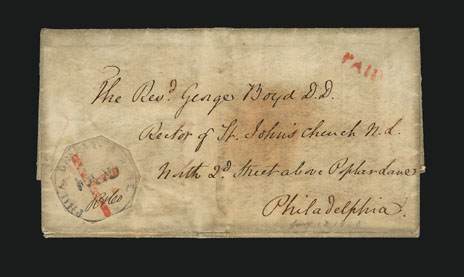 PAID
The Revd. George Boyd D.D.
Rector of St. John's Church N.L.
North 2d Street above Poplar Lane
Philadelphia.
PHILA
PAID